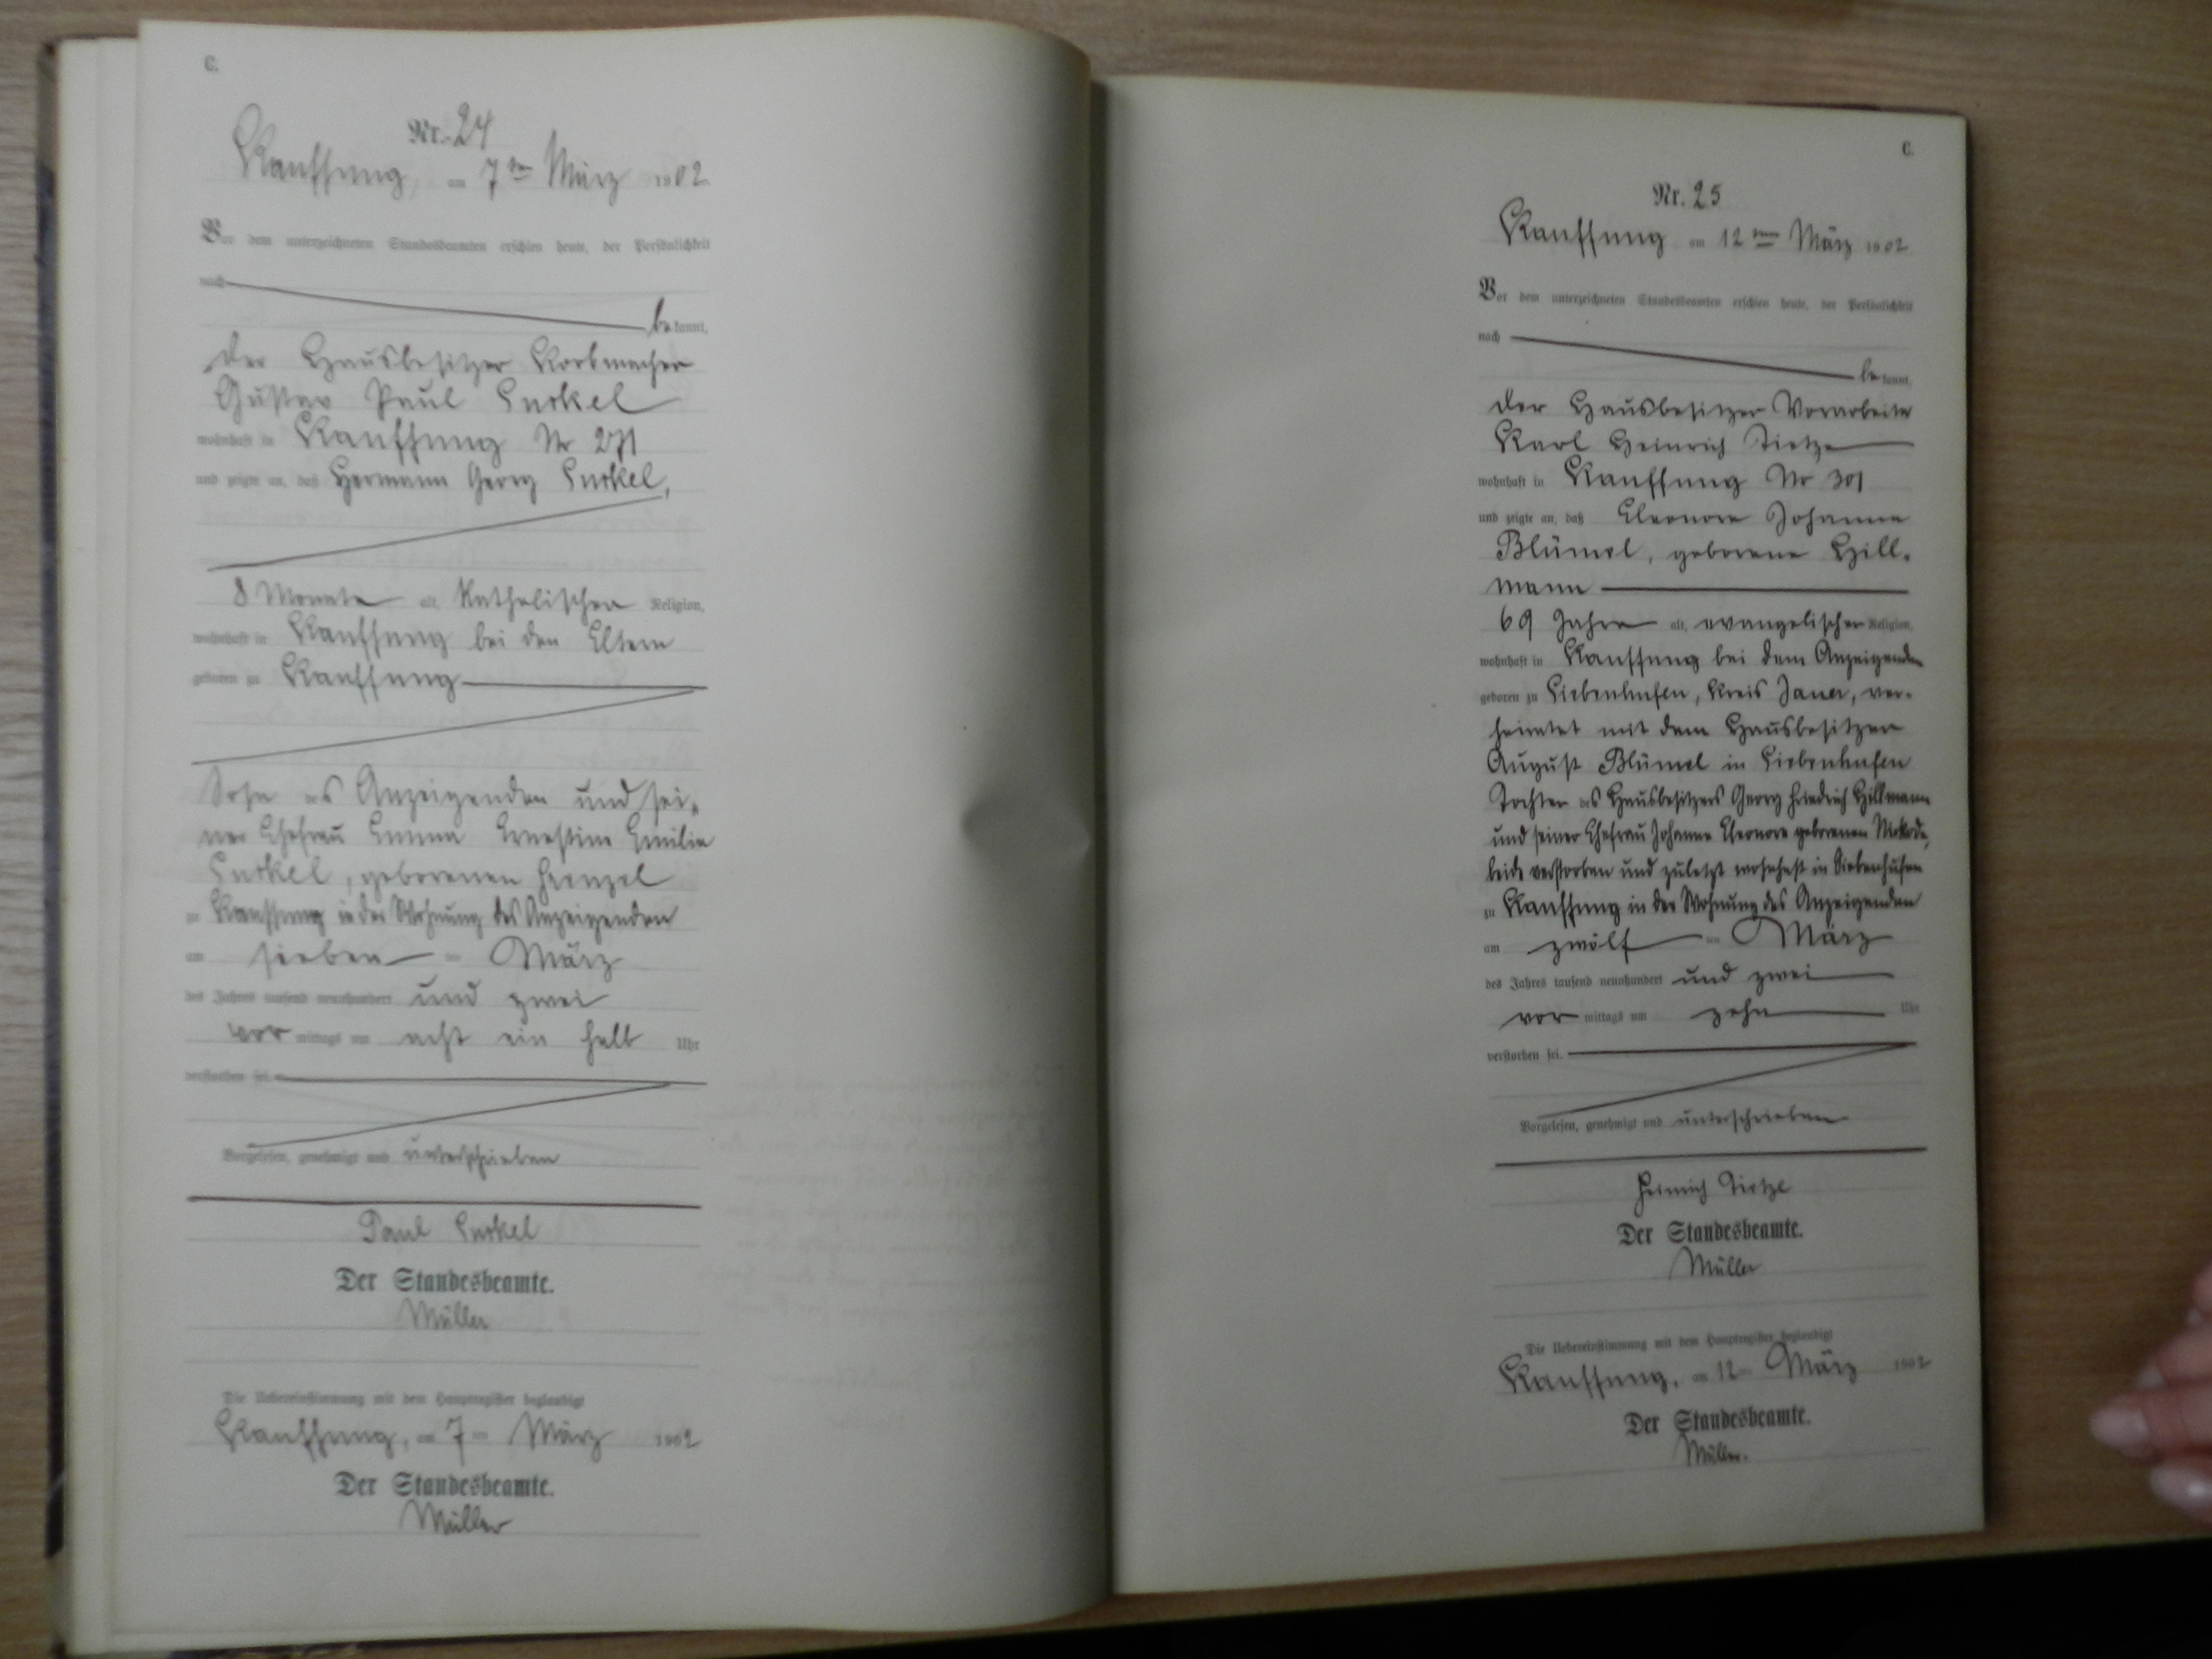 C.
Nr. 24
Kauffung, am 7ten März 1902
Vor dem unterzeichneten Standesbeamten erschien heute, der Persönlichkeit
nach
bekannt,
der Hausbesitzer Korbmacher
Gustav Paul
wohnhaft in Kauffung Nr 271
und zeigte an, daß Hermann Georg
8 Monate alt, katholischer Religion,
wohnhaft in Kauffung bei den Eltern
geboren zu Kauffung
Sohn des Anzeigenden und sei-
ner Ehefrau Emma Ernestine Emilie
geborenen
zu Kauffung in der Wohnung des Anzeigenden
am sieben ten März
des Jahres tausend neunhundert und zwei
vor mittags um acht ein halb Uhr
verstorben sei.
Vorgelesen, genehmigt und unterschrieben
Paul
Der Standesbeamte.
Müller
Die Uebereinstimmung mit dem Hauptregister beglaubigt
Kauffung, am 7ten März 1902
Der Standesbeamte.
Müller
C.
Nr. 25
Kauffung am 12ten März 1902
Vor dem unterzeichneten Standesbeamten erschien heute, der Persönlichkeit
nach
bekannt,
der Hausbesitzer Vorarbeiter
Karl Heinrich Tietze
wohnhaft in Kauffung Nr 301
und zeigte an, daß Eleonore Johanne
Blümel, geborene Hill-
mann
69 Jahre alt, evangelischer Religion,
wohnhaft in Kauffung bei dem Anzeigenden
geboren zu Siebenhufen, Kreis Jauer, ver-
heiratet mit dem Hausbesitzer
August Blümel in Siebenhufen
Tochter des Hausbesitzers Georg Friedrich Hillmann
und seiner Ehefrau Johanne Eleonore geborenen
beide verstorben und zuletzt wohnhaft in Siebenhufen
zu Kauffung in der Wohnung des Anzeigenden
am zwölf ten März
des Jahres tausend neunhundert und zwei
vor mittags um zehn Uhr
verstorben sei.
Vorgelesen, genehmigt und unterschrieben
Heinrich Tietze
Der Standesbeamte.
Müller
Die Uebereinstimmung mit dem Hauptregister beglaubigt
Kauffung, am 12ten März 1902
Der Standesbeamte.
Müller.